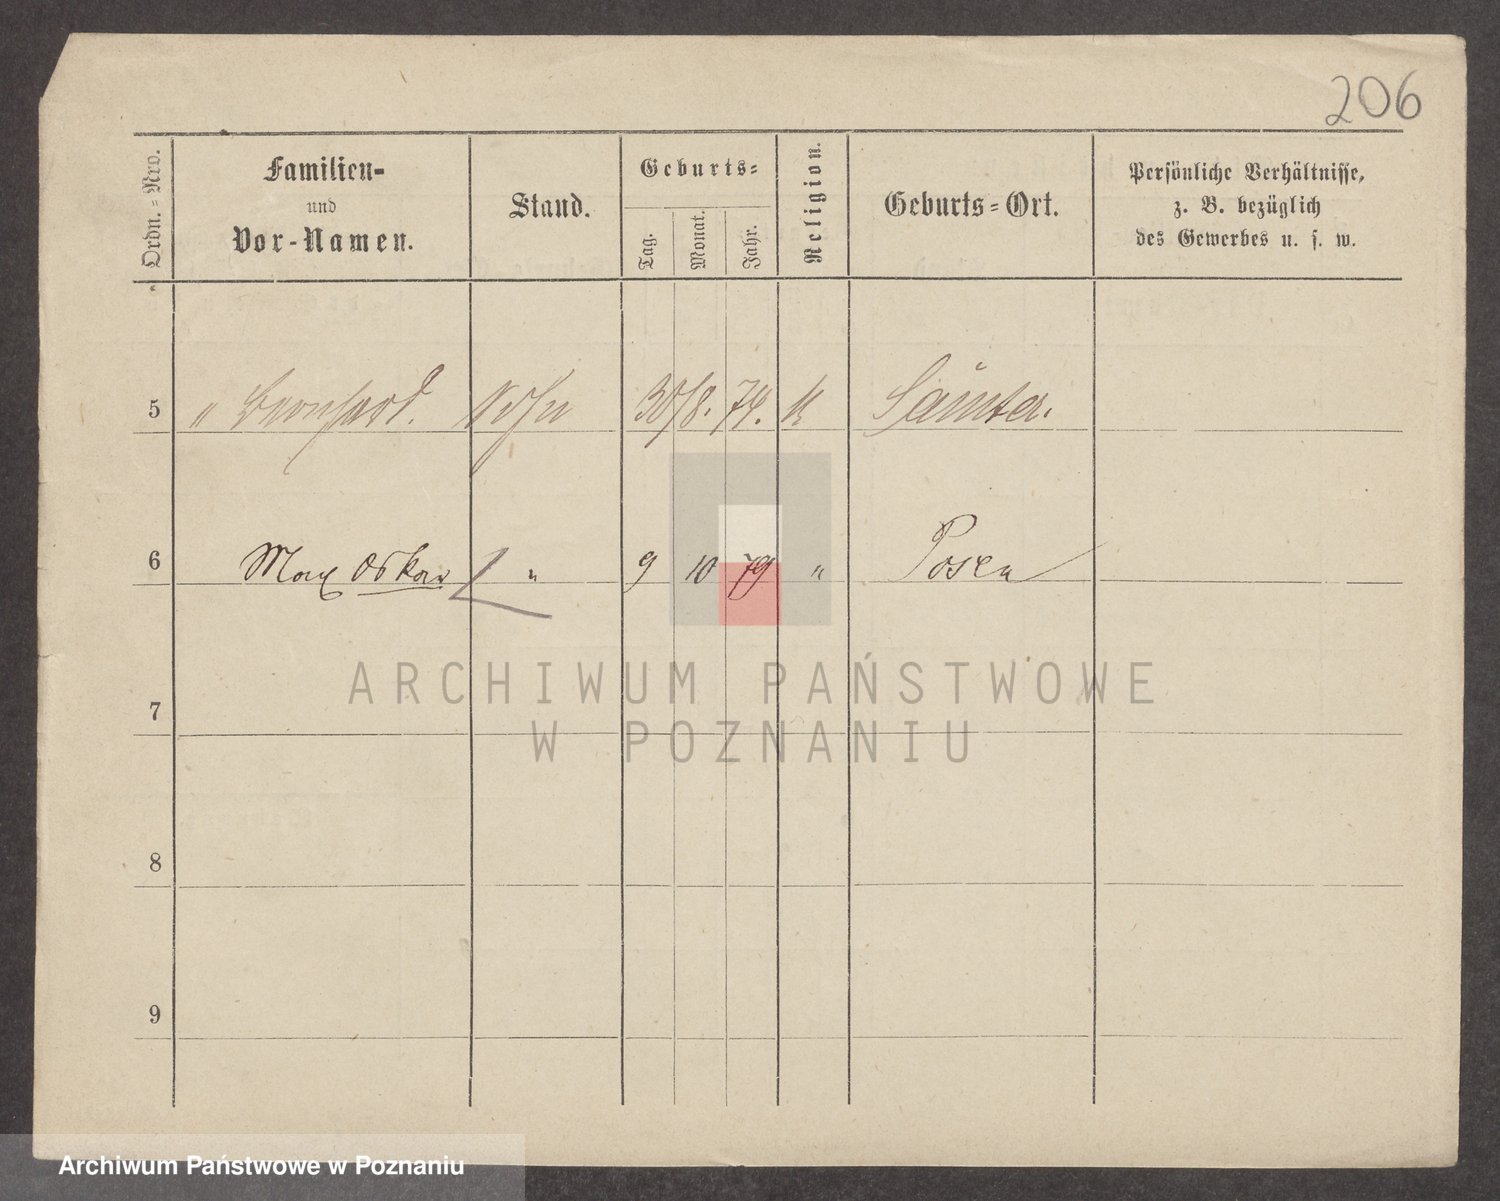 206
Ordn.=Nro.
Familien-
und
Vor-Namen.
Stand.
Geburts=
Tag.
Monat.
Jahr.
Religion.
Geburts=Ort.
Persönliche Verhältnisse,
z. B. bezüglich
des Gewerbes u. s. w.
5 " Bernhard. Sohn 30/8. 74. k Samter.
6 Max Oskar " 9 10 79 " Posen
7
8
9
ARCHIWUM PAŃSTWOWE
W POZNANIU
Archiwum Państwowe w Poznaniu